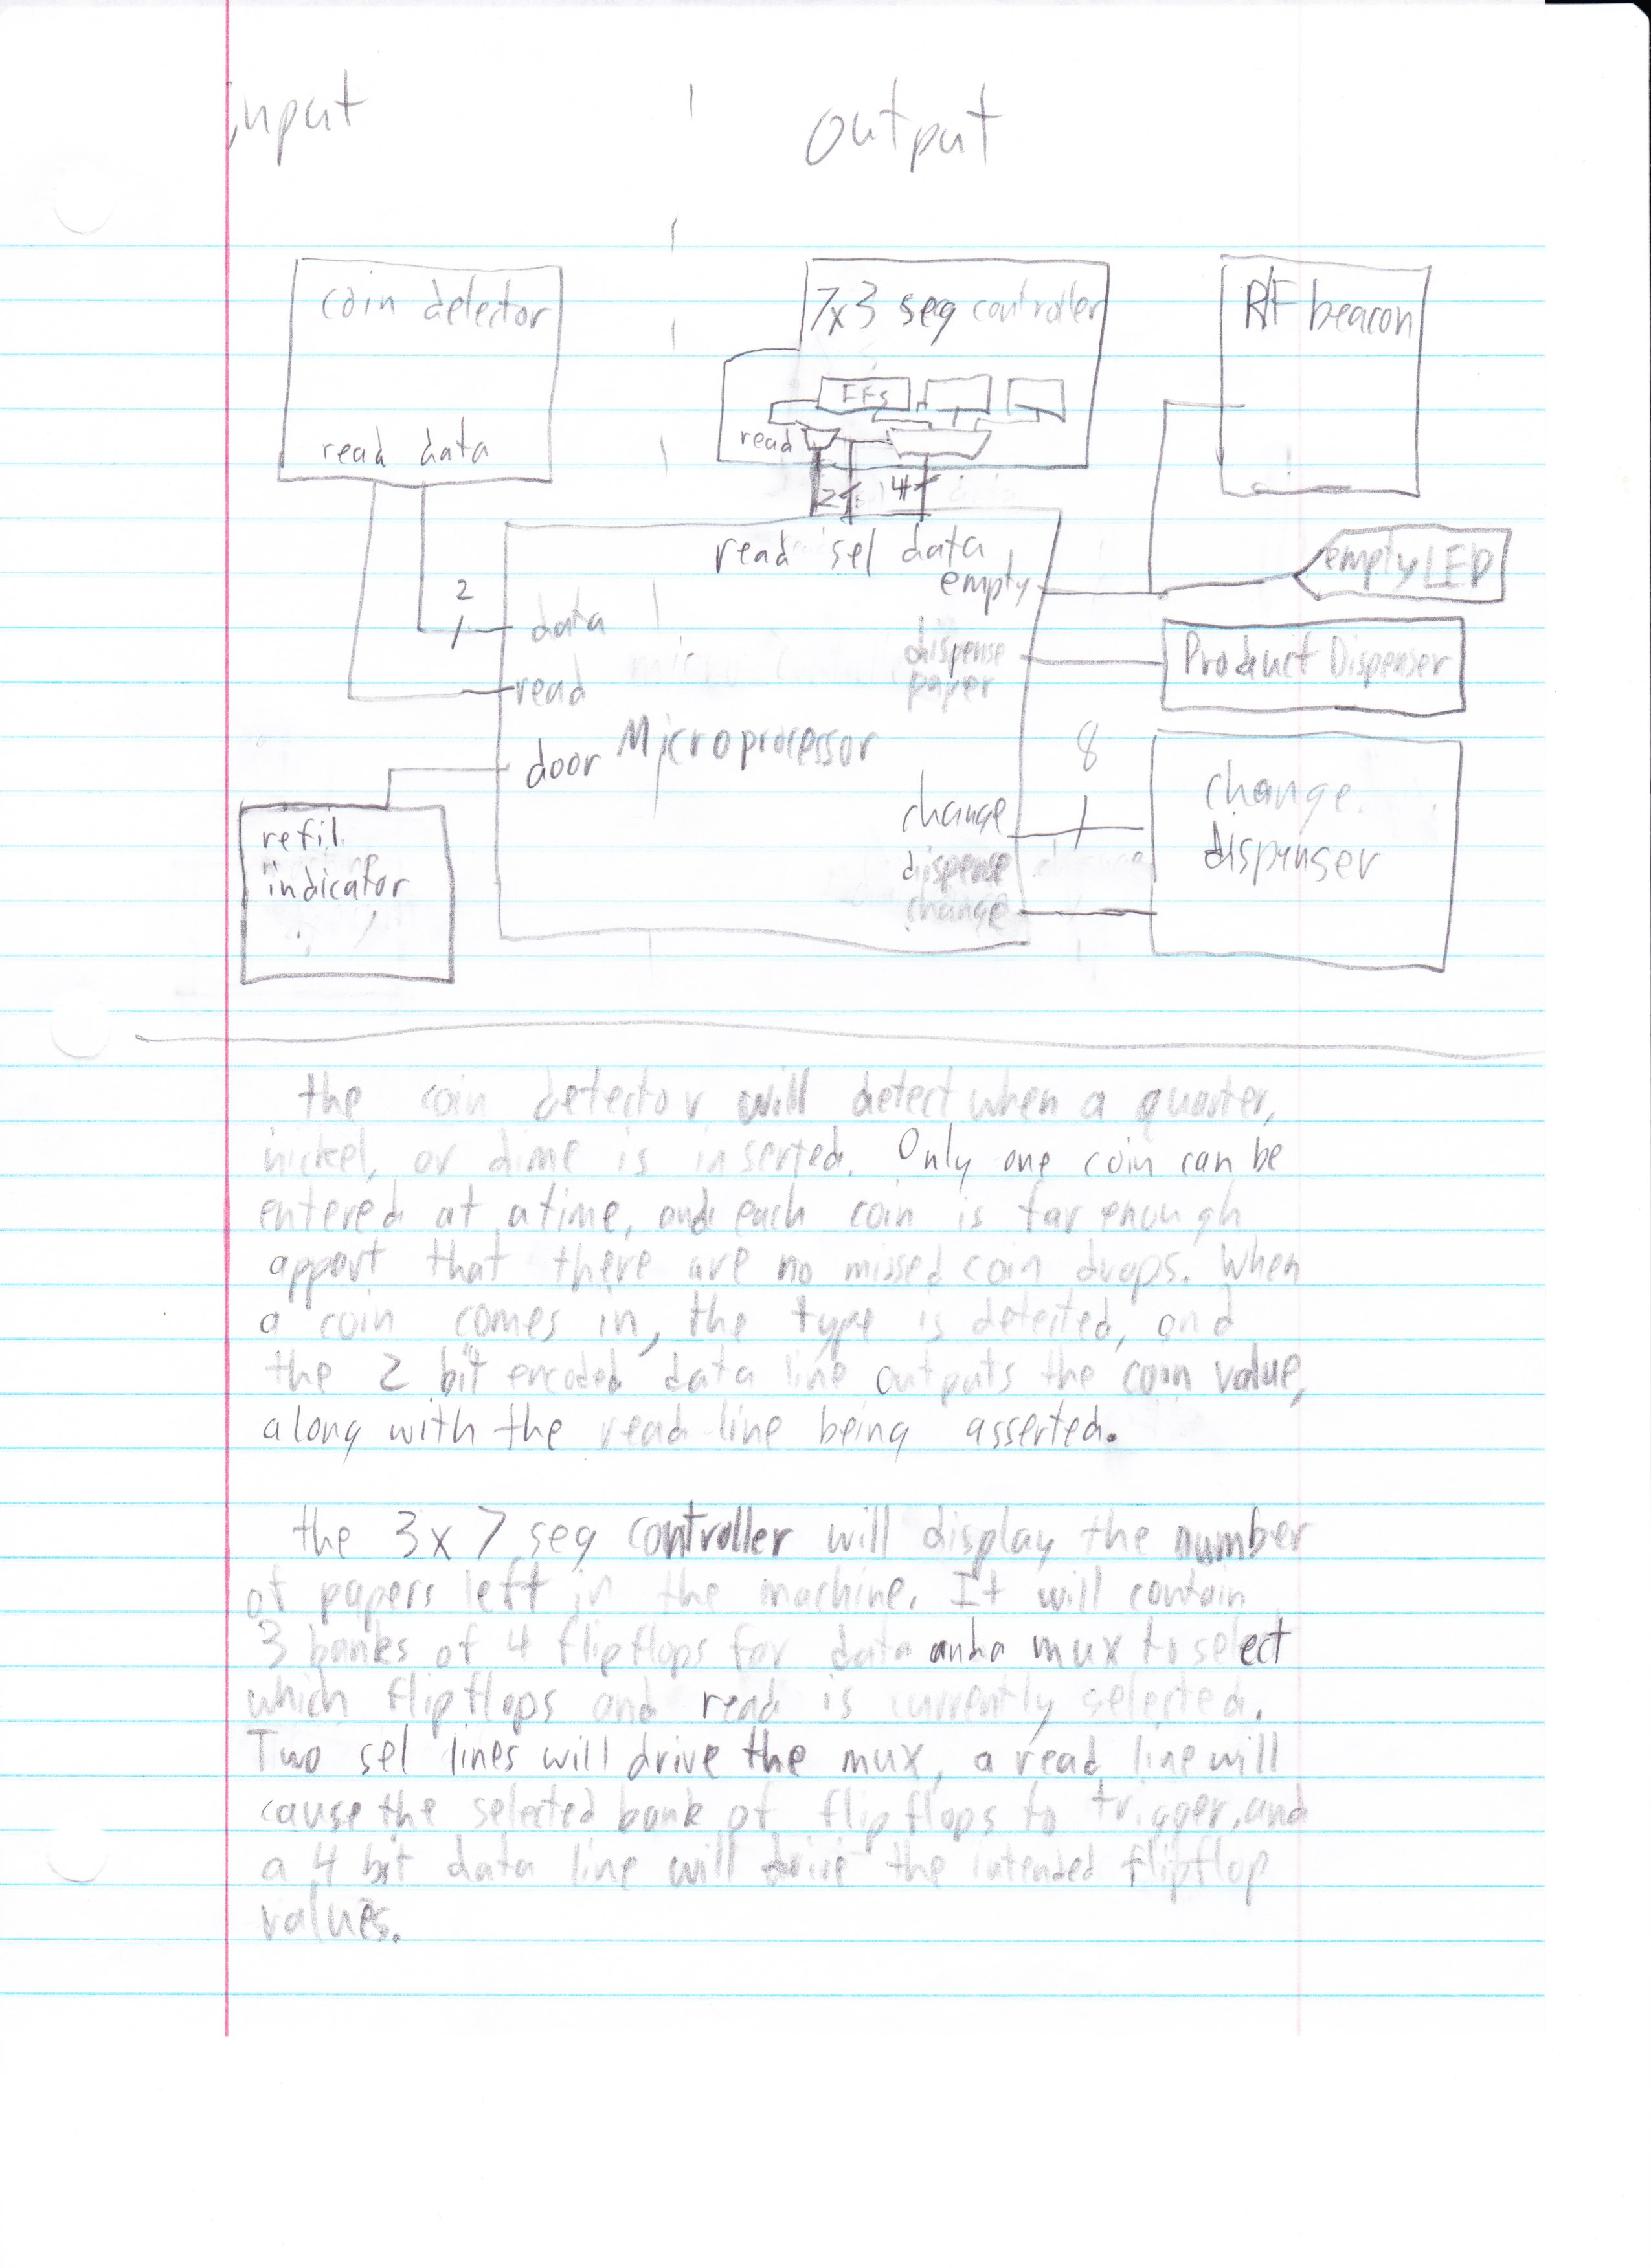 input
output
coin detector
7x3 seg controller
RF beacon
FFs
read
read data
2
4
read sel data
empty
empty LED
2
data
dispense
paper
Product Dispenser
read
door
Microprocessor
8
change
dispense
change
change
dispenser
refil
indicator
the coin detector will detect when a quarter,
nickel, or dime is inserted. Only one coin can be
entered at a time, and each coin is far enough
appart that there are no missed coin drops. When
a coin comes in, the type is detected, and
the 2 bit encoded data line outputs the coin value,
along with the read line being asserted.
the 3x7 seg controller will display the number
of papers left in the machine. It will contain
3 banks of 4 flipflops for data and a mux to select
which flipflops and read is currently selected.
Two sel lines will drive the mux, a read line will
cause the selected bank of flipflops to trigger, and
a 4 bit data line will drive the intended flipflop
values.